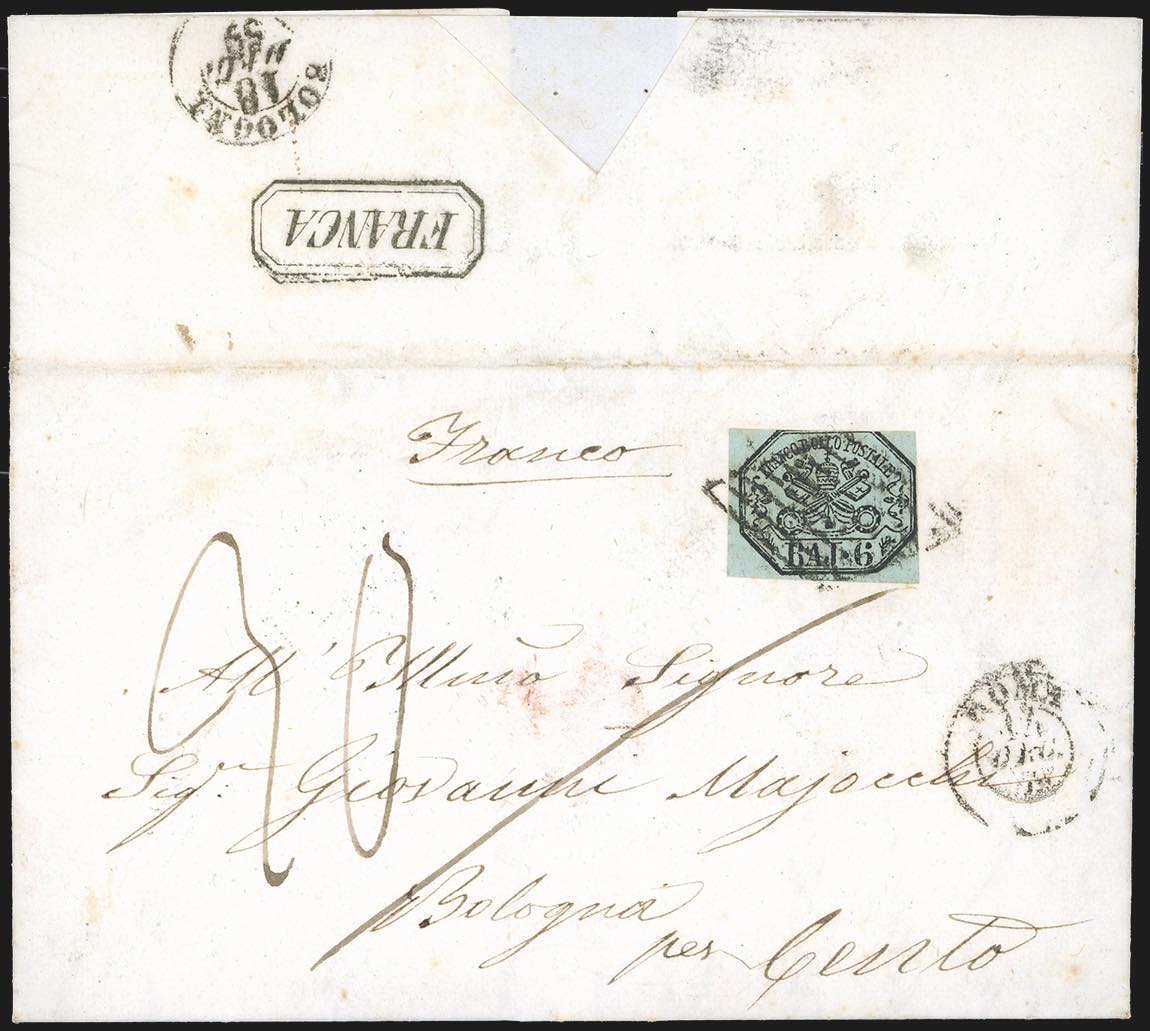 BOLOGNA
18
FRANCA
Franco
FRANCO BOLLO POSTALE
BAJ. 6
All' Illmo Signore
Sigr. Giovanni Majocchi
Bologna
per Cento
ROMA
DEC